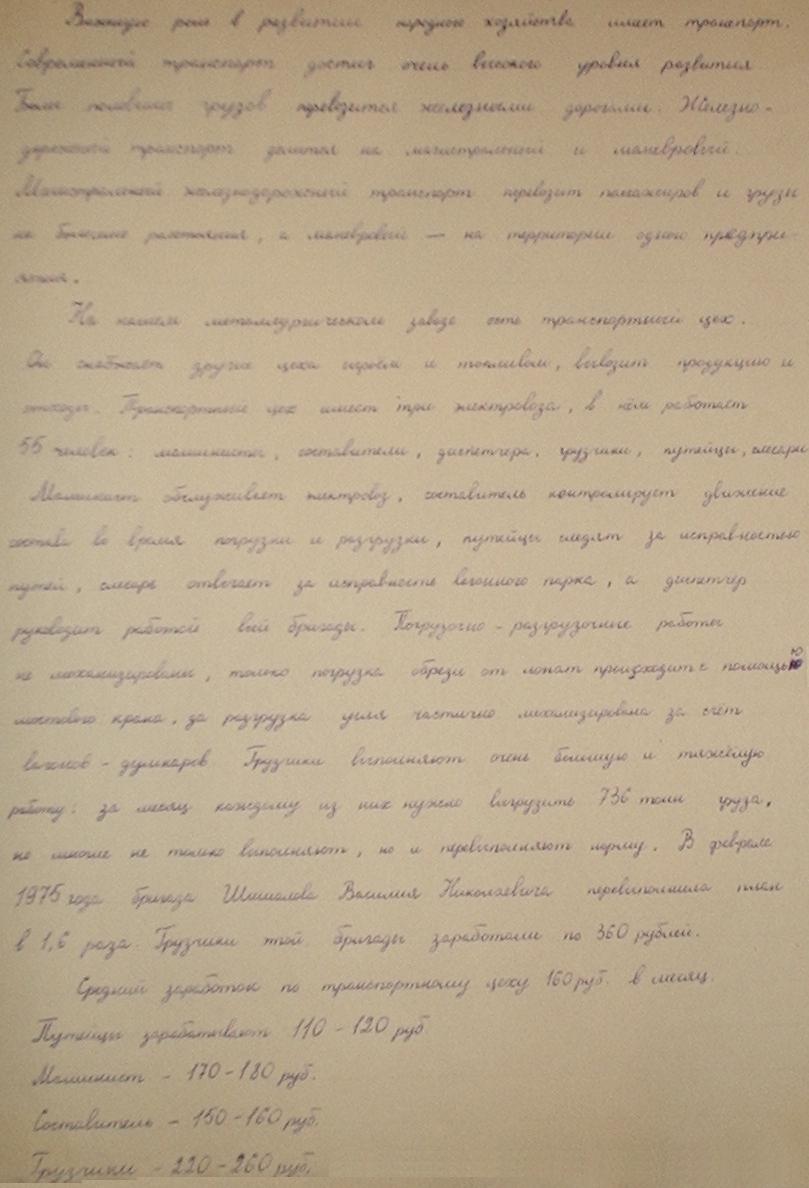 Важную роль в развитии народного хозяйства имеет транспорт.
Современный транспорт достиг очень высокого уровня развития
Более половины грузов перевозится железными дорогами. Железно-
дорожный транспорт делится на магистральный и маневровый.
Магистральный железнодорожный транспорт перевозит пассажиров и грузы
на большие расстояния, а маневровый — на территории одного предпри-
ятия.
На нашем металлургическом заводе есть транспортный цех.
Он снабжает другие цеха сырьём и топливом, вывозит продукцию и
отходы. Транспортный цех имеет три электровоза, в нём работает
55 человек: машинисты, составители, диспетчера, грузчики, путейцы, слесари
Машинист обслуживает электровоз, составитель контролирует движение
состава во время погрузки и разгрузки, путейцы следят за исправностью
путей, слесарь отвечает за исправность вагонного парка, а диспетчер
руководит работой всей бригады. Погрузочно-разгрузочные работы
не механизированы, только погрузка обрези от лопат происходит с помощью
мостового крана, да разгрузка угля частично механизирована за счёт
вагонов-думпкаров Грузчики выполняют очень большую и тяжёлую
работу: за месяц каждому из них нужно выгрузить 736 тонн груза,
но многие не только выполняют, но и перевыполняют норму. В феврале
1975 года бригада Василия Николаевича перевыполнила план
в 1,6 раза. Грузчики этой бригады заработали по 360 рублей.
Средний заработок по транспортному цеху 160 руб. в месяц.
Путейцы зарабатывают 110 - 120 руб.
Машинист - 170 - 180 руб.
Составитель - 150 - 160 руб.
Грузчики - 220 - 260 руб.